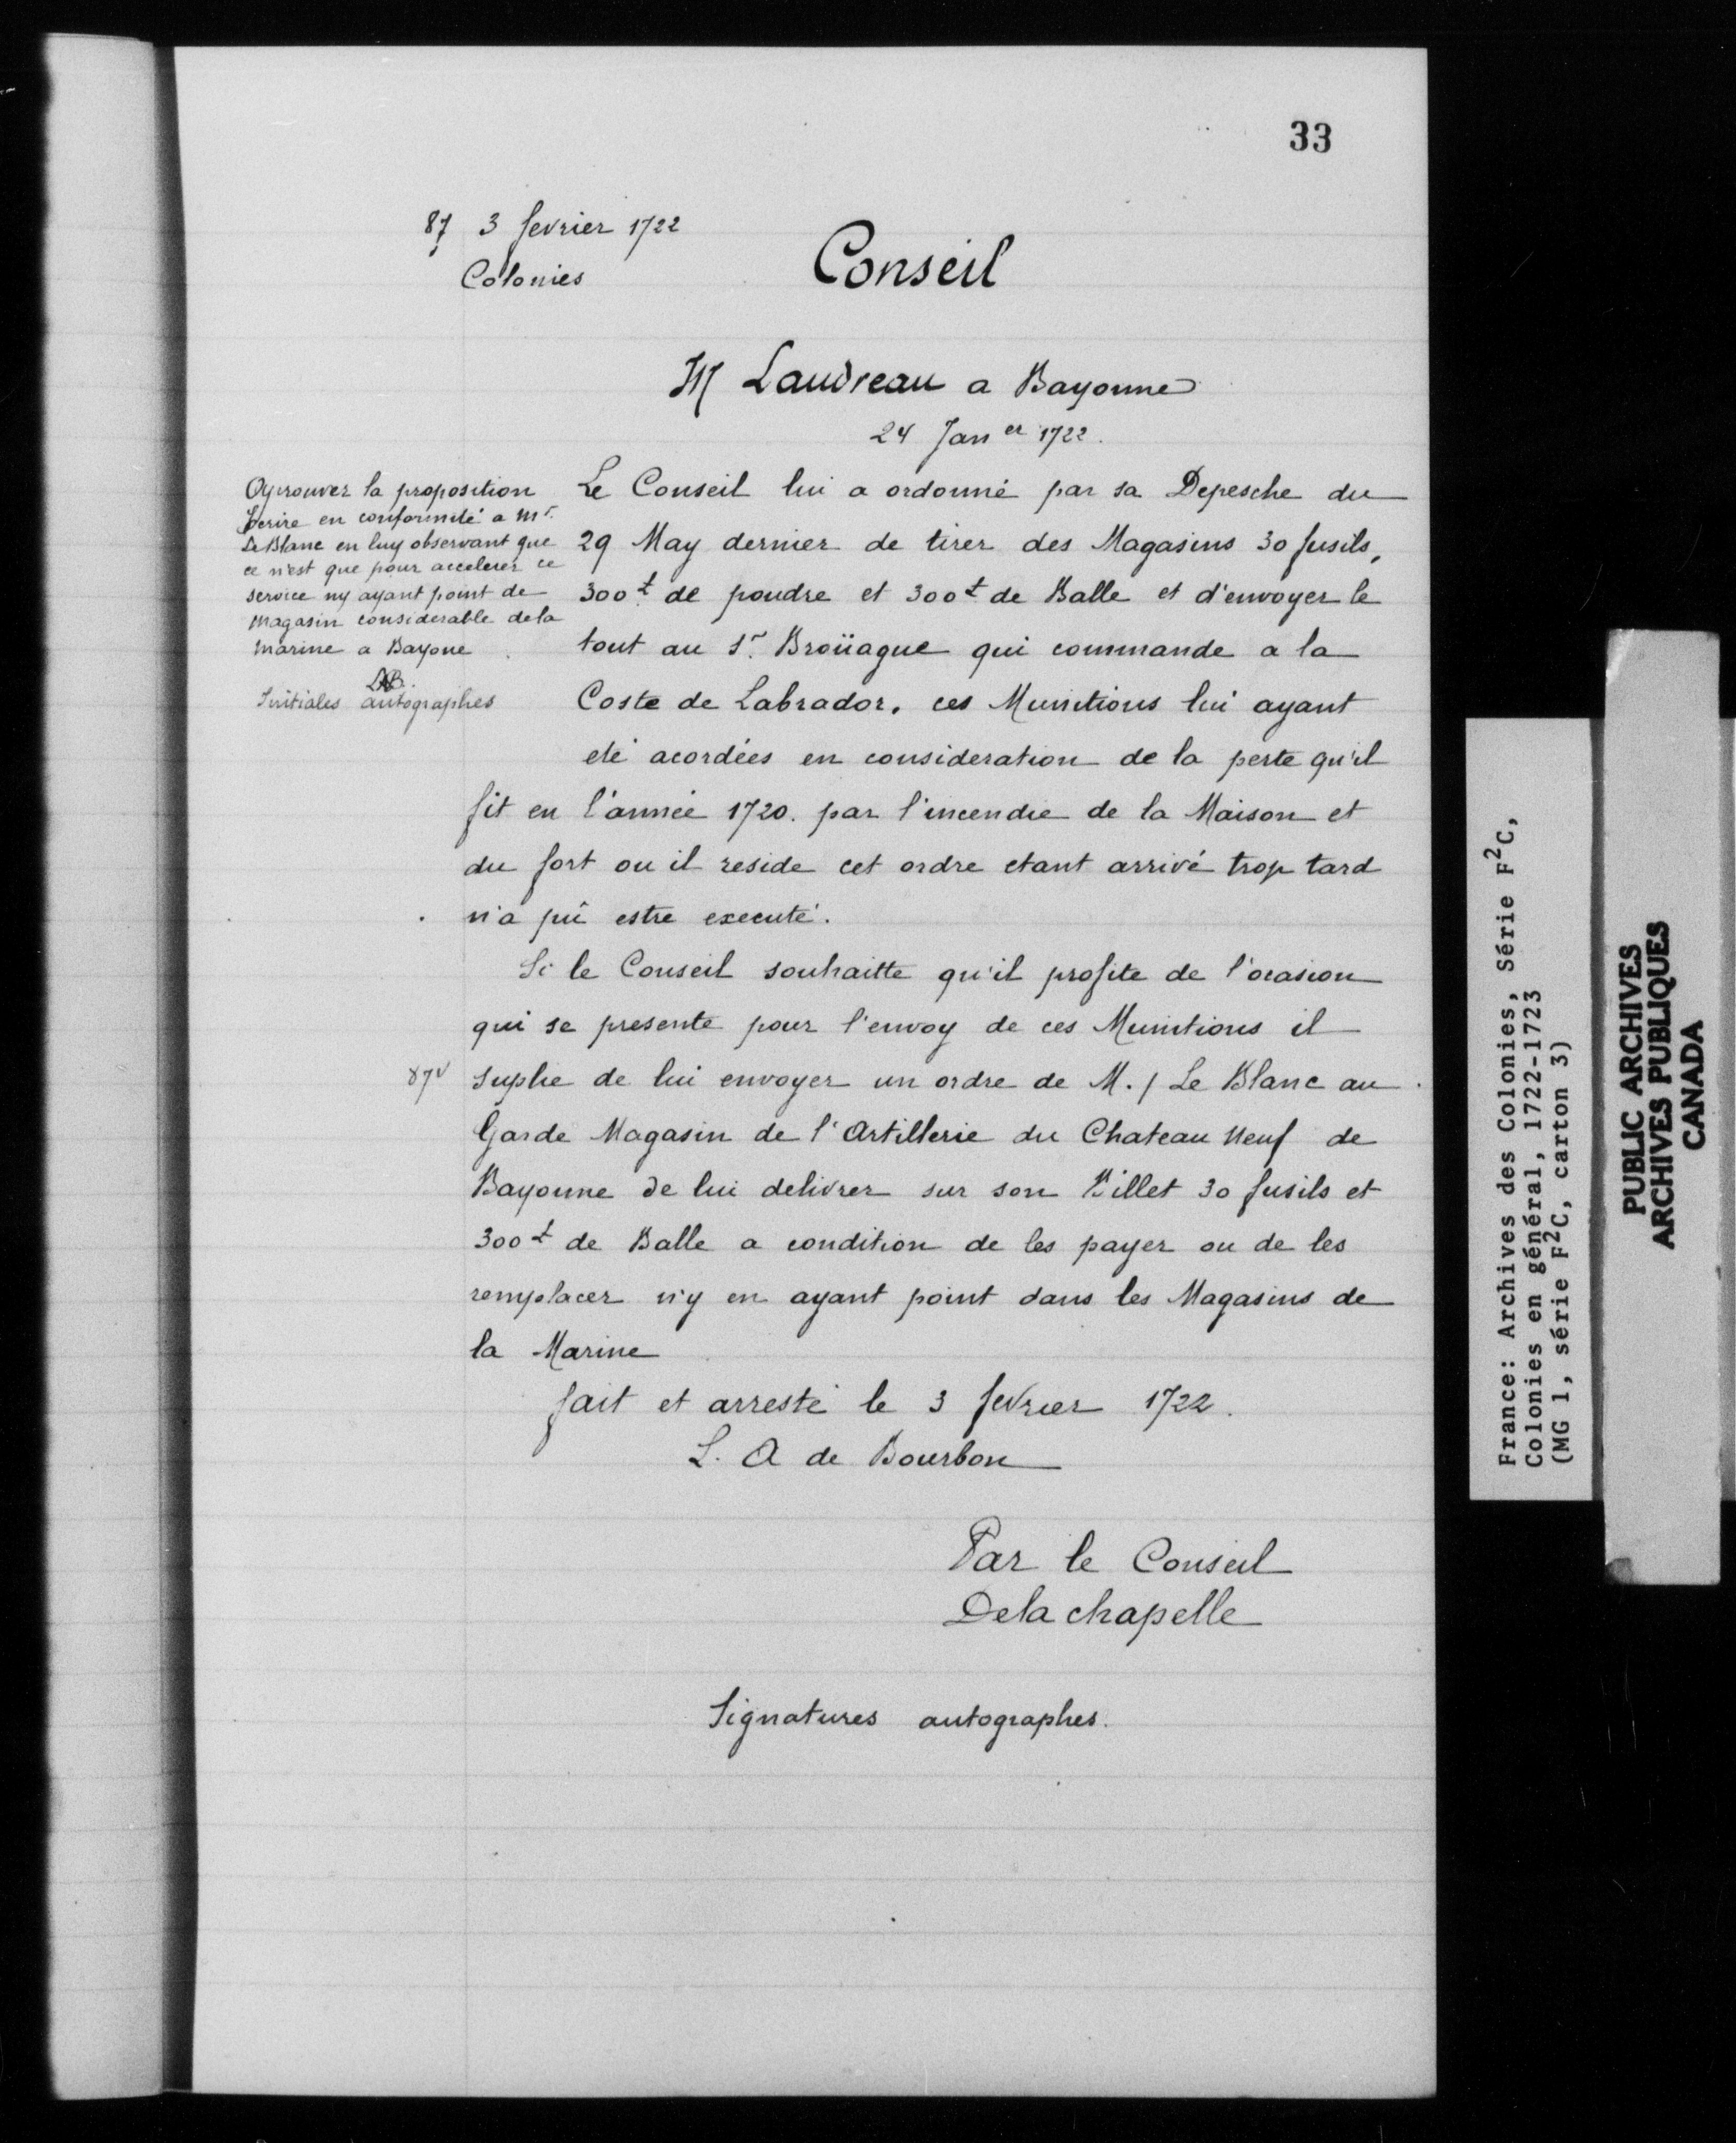 33
87 3 fevrier 1722
Colonies
Conseil
M Laudreau a Bayonne
24 Jan er 1722.
Aprouver la proposition
Ecrire en conformité a Mr.
Le Blanc en luy observant que
ce n'est que pour accelerer ce
service ny ayant point de
Magasin considerable dela
Marine a Bayone
LAB.
Initiales autographes
Le Conseil lui a ordonné par sa Depesche du
29 May dernier de tirer des Magasins 30 fusils,
300 ₶ de poudre et 300 ₶ de Balle et d'envoyer le
tout au Sr. Broüague qui commande a la
Coste de Labrador, ces Munitions lui ayant
eté acordées en consideration de la perte qu'il
fit en l'année 1720. par l'incendie de la Maison et
du fort ou il reside cet ordre etant arrivé trop tard
n'a pû estre executé.
Si le Conseil souhaitte qu'il profite de l'ocasion
qui se presente pour l'envoy de ces Munitions il
87v suplie de lui envoyer un ordre de M. / Le Blanc au
Garde Magasin de l'Artillerie du Chateau Neuf de
Bayonne de lui delivrer sur son Billet 30 fusils et
300 ₶ de Balle a condition de les payer ou de les
remplacer n'y en ayant point dans les Magasins de
la Marine
fait et arresté le 3 fevrier 1722.
L. A de Bourbon
Par le Conseil
Delachapelle
Signatures autographes.
France: Archives des Colonies, Série F²C,
Colonies en général, 1722-1723
(MG 1, série F²C, carton 3)
PUBLIC ARCHIVES
ARCHIVES PUBLIQUES
CANADA